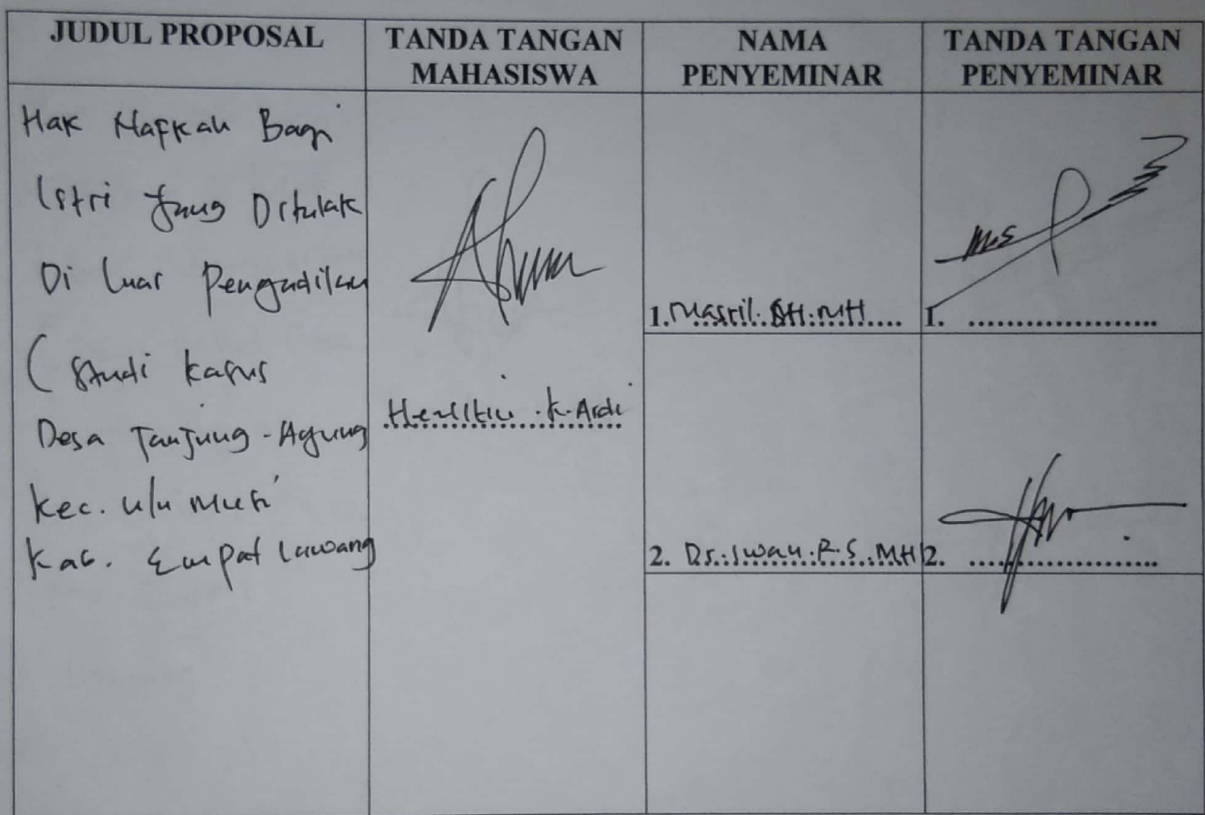 JUDUL PROPOSAL
TANDA TANGAN
MAHASISWA
NAMA
PENYEMINAR
TANDA TANGAN
PENYEMINAR
Hak Nafkah Bagi
Istri yang Ditalak
Di luar Pengadilan
(Studi kasus
Desa Tanjung-Agung
Kec. ulu Musi
Kab. Empat Lawang
K. Ardi
1. Masril. SH. MH
1. ....................
2. Drs. Iwan. R. S. MH
2. ....................